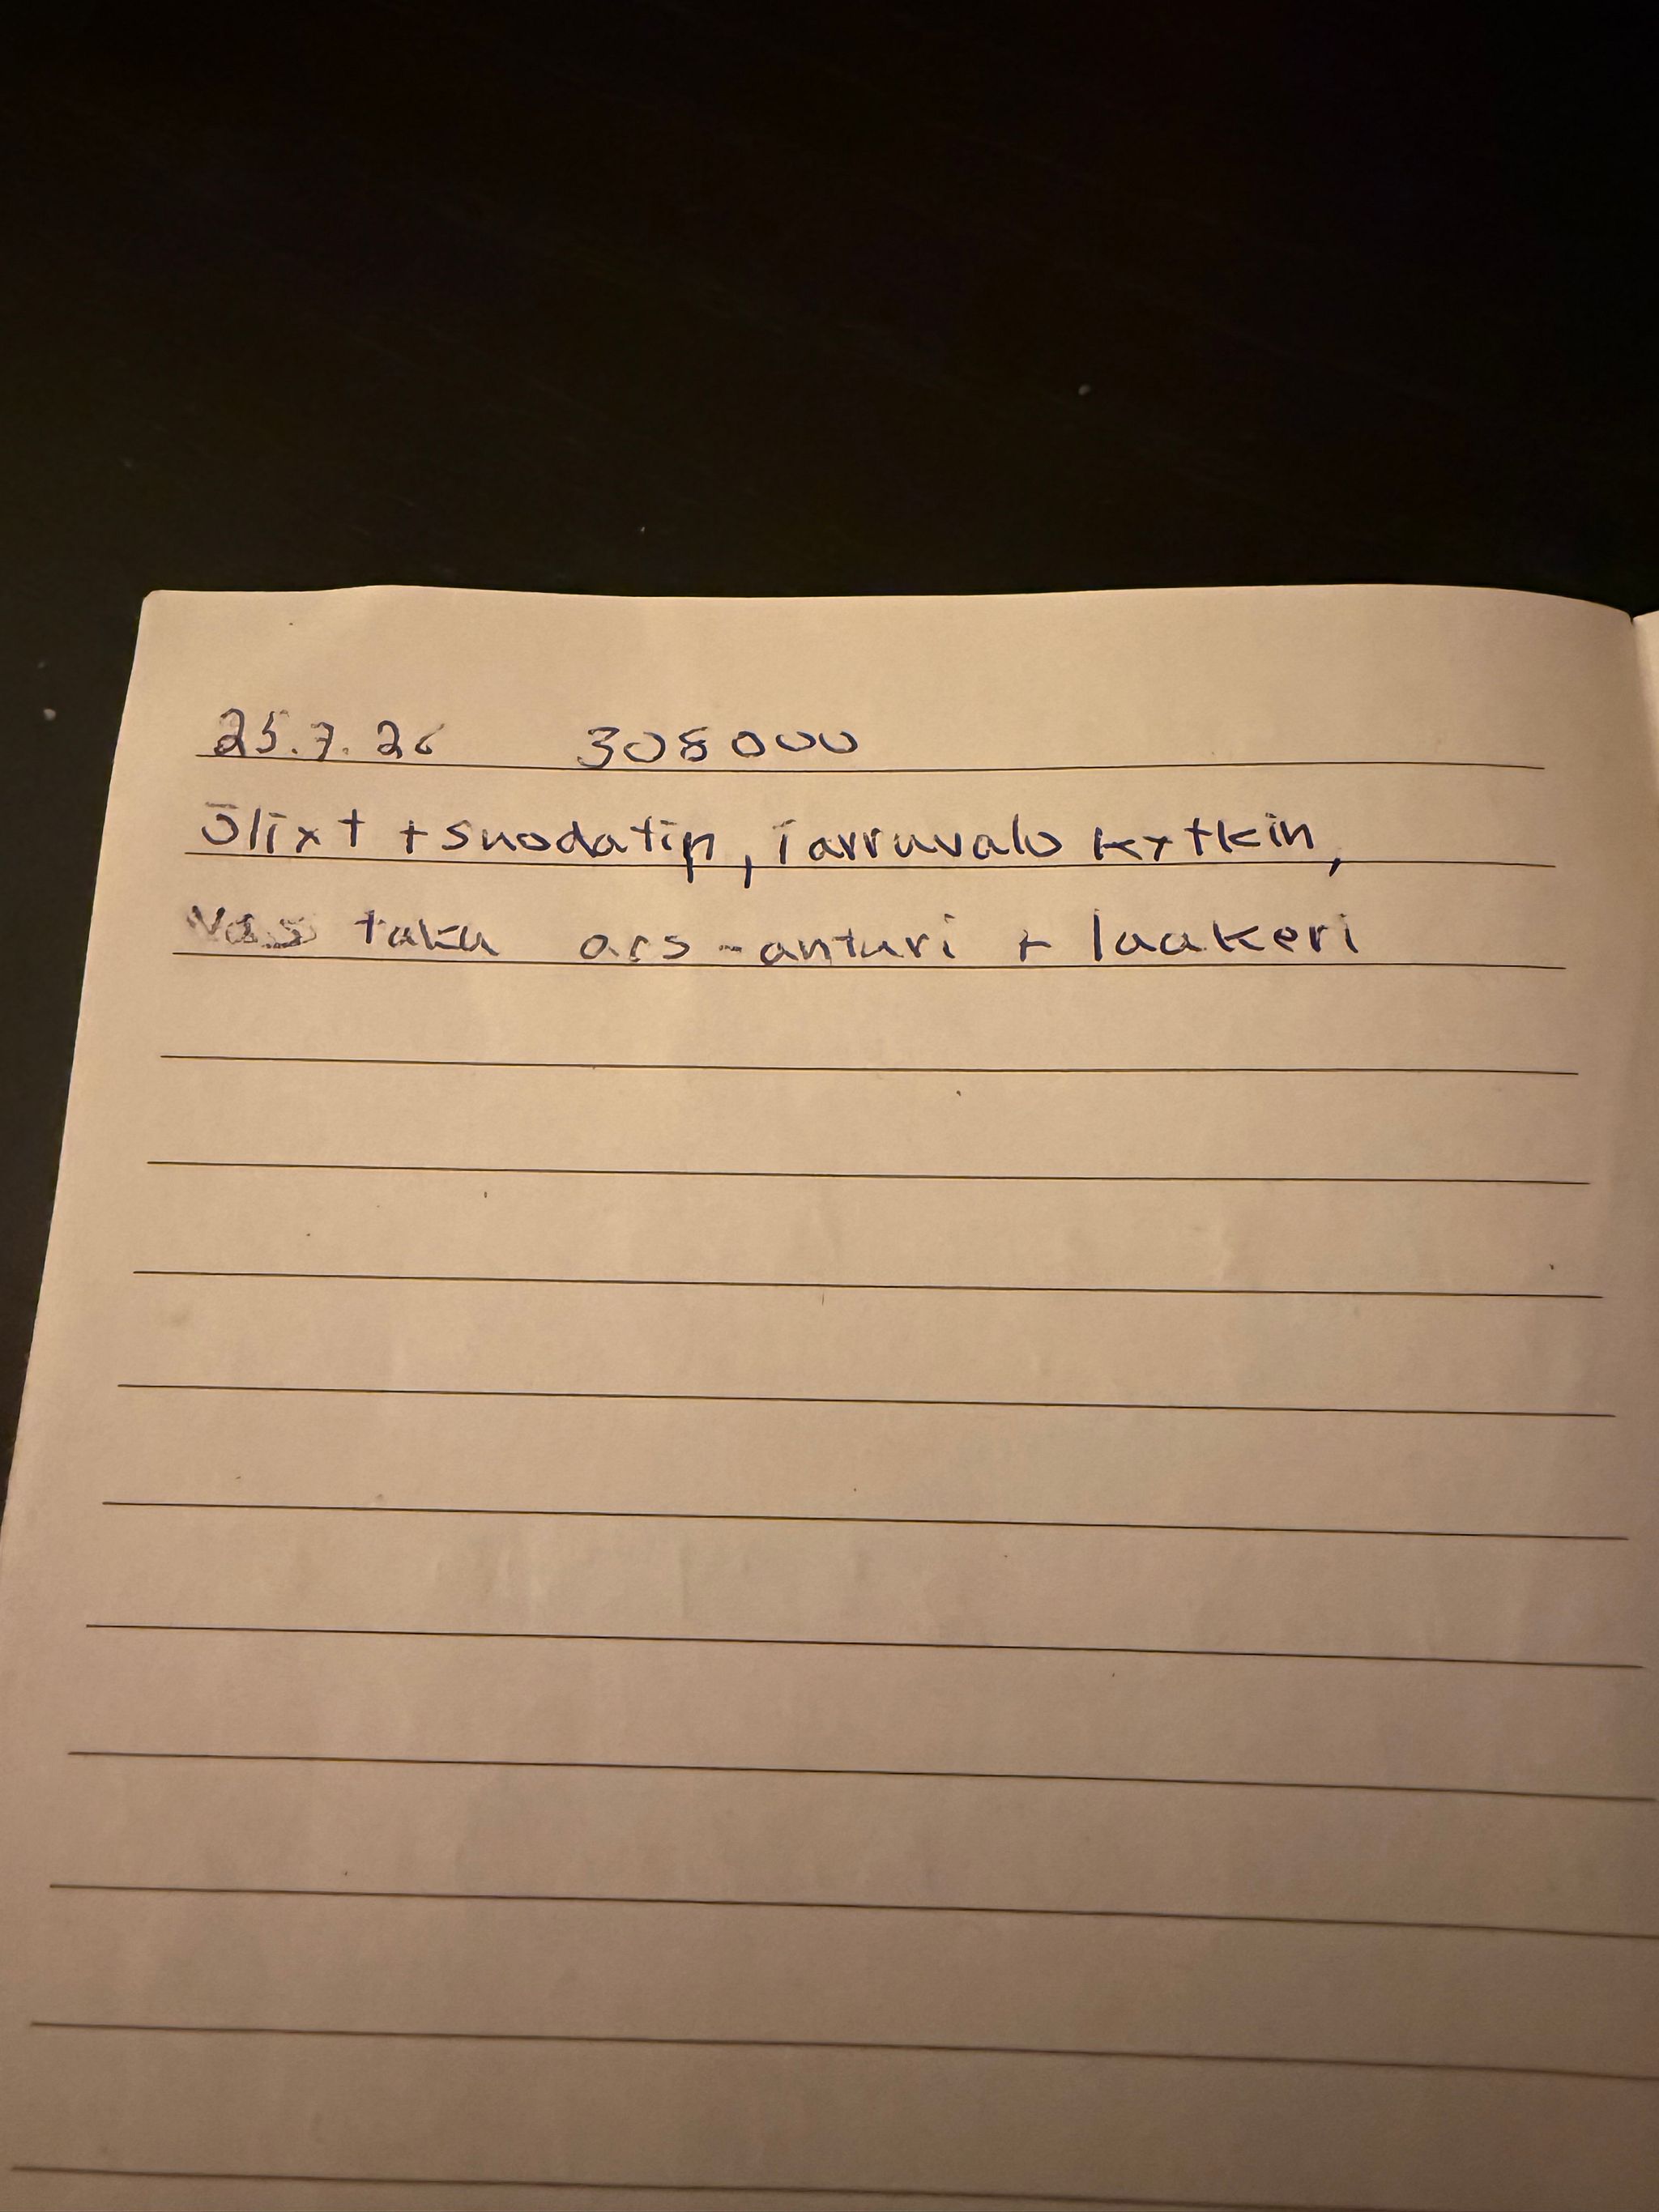 25.7.26 308000
Öljyt + suodatin, jarruvalo kytkin,
Vas taka ABS-anturi + laakeri